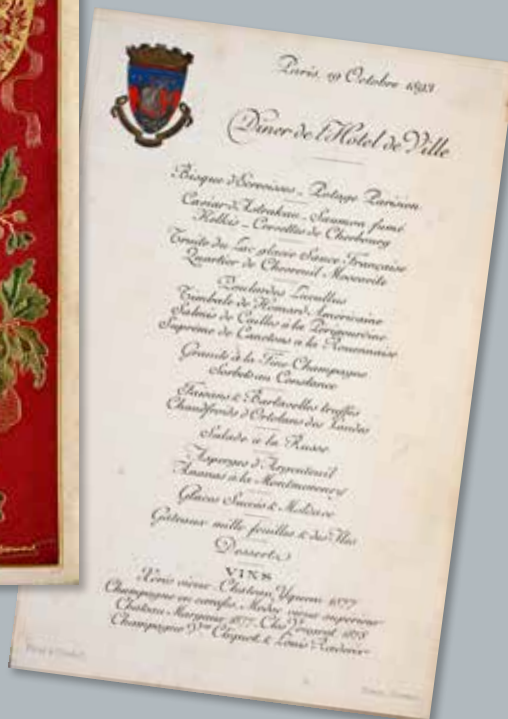 Paris, 19 Octobre 1893
Dîner de l'Hôtel de Ville
Bisque d'Ecrevisses - Potage Parisien
Caviar d'Astrakan - Saumon fumé
Kilkis - Crevettes de Cherbourg
Truite du Lac glacée Sauce Française
Quartier de Chevreuil Moscovite
Poulardes Lucullus
Timbale de Homard Americaine
Salmis de Cailles à la Périgourdine
Suprême de Canetons à la Rouennaise
Granité à la Fine Champagne
Sorbets au Constance
Faisans & Bartavelles truffés
Chaudfroids d'Ortolans des Landes
Salade à la Russe
Asperges d'Argenteuil
Ananas à la Montmorency
Glaces Succès &
Gâteaux mille feuilles & des Iles
Desserts
VINS
Xérès vieux - Château Yquem 1877
Champagne en carafes, Médoc vieux supérieur
Château Margaux 1877 - Clos Vougeot 1878
Champagne Vve Clicquot & Louis Roederer